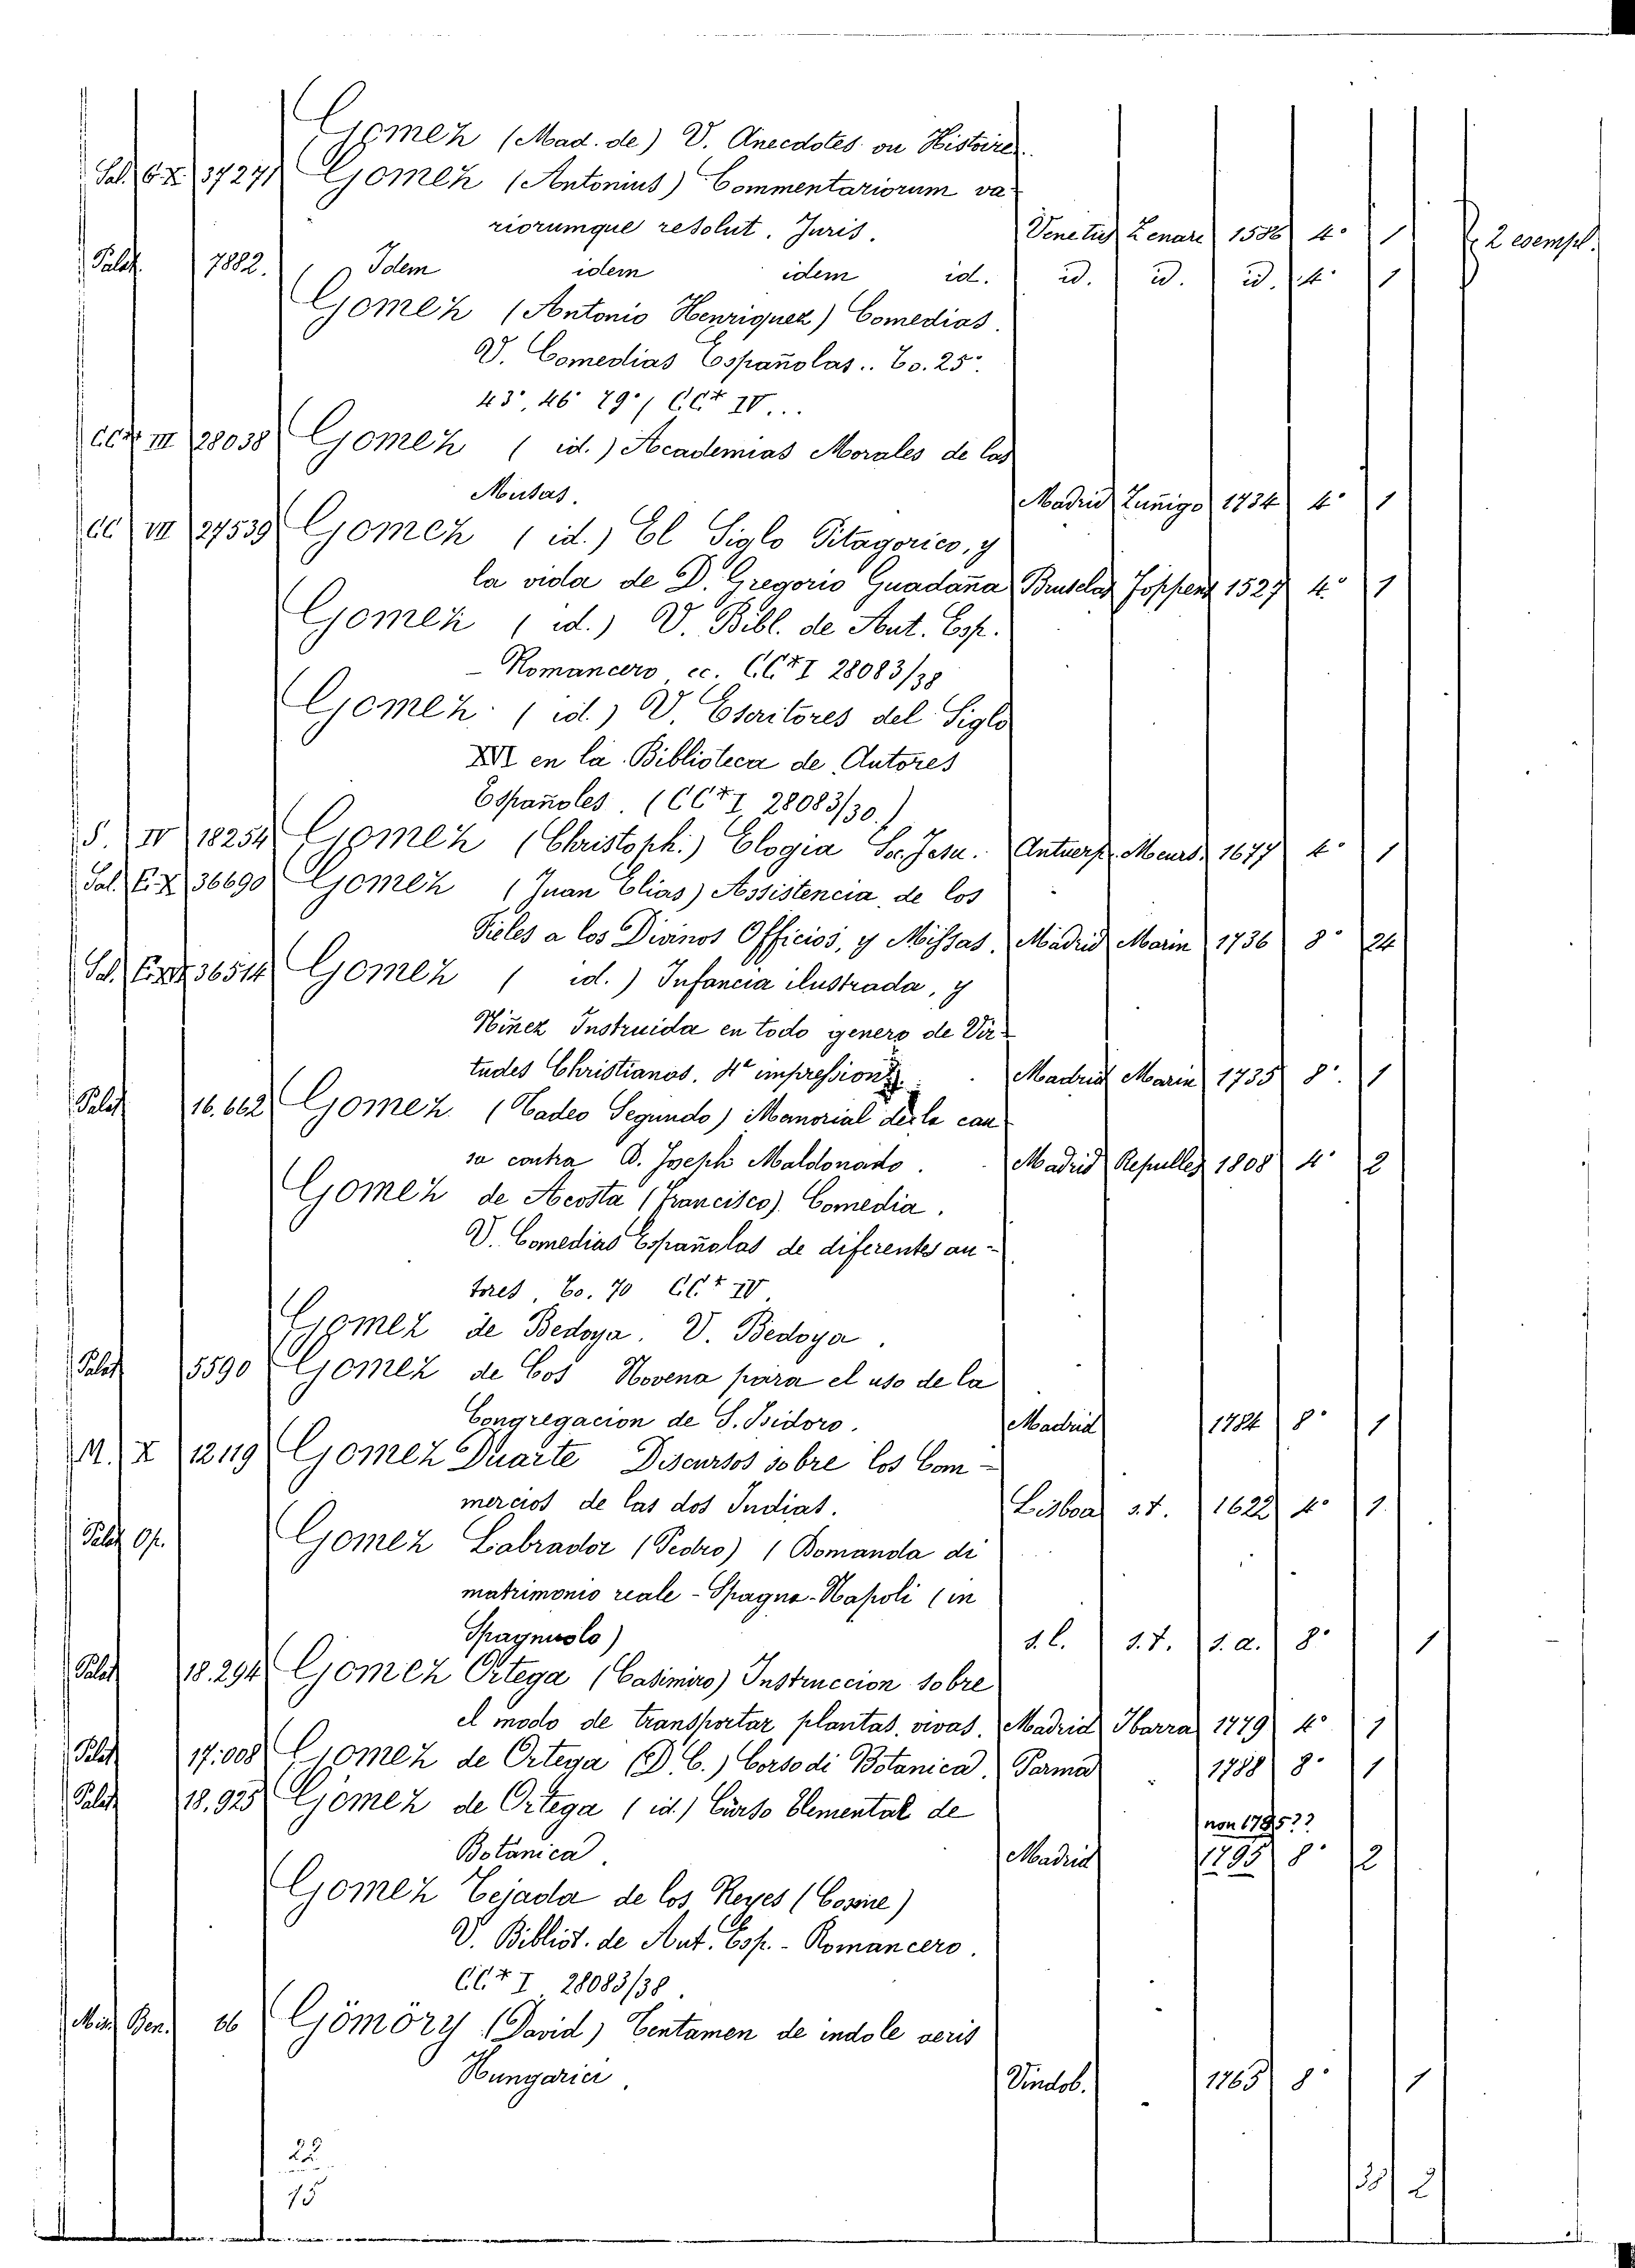 Gomez (Mad. de) V. Anecdotes ou Histoire
Sal. C. X. 37271 Gomez (Antonius) Commentariorum va-
riorumque resolut. Juris. Venetiis Zenare 1586 4° 1 2 esempl.
Palat. 7882. Idem idem idem id. id. id. id. 4° 1
Gomez (Antonio Henriquez) Comedias.
V. Comedias Españolas.. To. 25.
43, 46 79. / CC* IV...
CC* III 28038 Gomez (id.) Academias Morales de las
Musas. Madrid Zuñigo 1734 4° 1
CC VII 27539 Gomez (id.) El Siglo Pitagorico, y
la vida de D. Gregorio Guadaña Bruselas Foppens 1527 4° 1
Gomez (id.) V. Bibl. de Aut. Esp.
- Romancero, ec. CC* I 28083/38
Gomez (id.) V. Escritores del Siglo
XVI en la Biblioteca de Autores
Españoles. (CC* I, 28083/30.)
S. IV 18254 Gomez (Christoph.) Elogia Soc. Jesu. Antuerp. Meurs. 1677 4° 1
Sal. E. X 36690 Gomez (Juan Elias) Assistencia de los
Fieles a los Divinos Officios, y Missas. Madrid Marin 1736 8° 24
Sal. 36514 Gomez (id.) Infancia ilustrada, y
Niñez Instruida en todo genero de Vir-
tudes Christianas. 4ª impression. Madrid Marin 1735 8° 1
Palat 16.662 Gomez (Tadeo Segundo) Manorial de la cau
sa contra D. Joseph Maldonado. Madrid Repulles 1808 4° 2
Gomez de Acosta (Francisco). Comedia.
V. Comedias Españolas de diferentes au-
tores, To. 70 CC* IV
Gomez de Bedoya. V. Bedoya.
Palat 5590 Gomez de Cos Novena para el uso de la
Congregacion de S. Isidoro. Madrid 1784 8° 1
M. X 12119 Gomez Duarte Discursos sobre los Com-
mercios de las dos Indias. Lisboa s.t. 1622 4° 1.
Palat Op. Gomez Labrador (Pedro) (Domanda di
matrimonio reale - Spagna-Napoli (in
Spagnuolo) s.l. s.t. s.a. 8° 1
Palat 18.294 Gomez Ortega (Casimiro) Instruccion sobre
el modo de transportar plantas vivas. Madrid Ibarra 1779 4° 1
Palat 17.008 Gomez de Ortega (D. C.) Corso di Botanica. Parma 1788 8° 1
Palat 18.925 Gomez de Ortega (id.) Curso Elemental de
non 1785??
Botanica. Madrid 1795 8° 2
Gomez Tejada de los Reyes (Cosme)
V. Bibliot. de Aut. Esp. - Romancero.
CC* I 28083/38.
Misc. Ben. 66 Gömöry (David) Tentamen de indole aeris
Hungarici. Vindob. 1765 8° 1
22
15
2